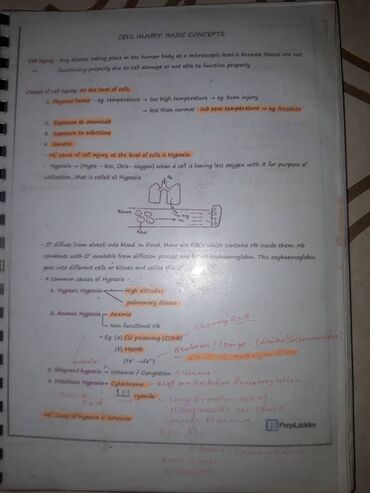 CELL INJURY: BASIC CONCEPTS
Cell injury - Any disease taking place in the human body at a microscopic level is because tissues are not
functioning properly due to cell damage or not able to function properly
Causes of cell injury at the level of cells
1. Physical factor - eg. temperature → too high temperature → eg. burn injury
→ less than normal sub zero temperature → eg frostbite
2. Exposure to chemicals
3. Exposure to infections
4. Genetic
- MC cause of cell injury at the level of cells is Hypoxia
- Hypoxia → (Hypo - less, Oxia - oxygen) when a cell is having less oxygen with it for purpose of
utilization, that is called as Hypoxia
- O² diffuse from alveoli into blood. In blood, there are RBCs which contains Hb inside them. Hb
combines with O² available from diffusion process and forms oxyhaemoglobin. This oxyhaemoglobin
goes into different cells or tissues and utilize this O²
- 4 common causes of Hypoxia -
1. Hypoxic Hypoxia
High altitudes
pulmonary disease
2. Anemic Hypoxia
Anemia
Non functional Hb
• Eg. (a) CO poisoning (COHb) Cherry Red
(b) MetHb
(Fe² → Fe³)
Newborn / Drugs
3. Stagnant hypoxia → Ischemia / Congestion
4. Histotoxic Hypoxia - Cytochrome - Reqd for oxidative phosphorylation
cyanide
use of
Nitroprusside can cause
cyanide poisoning
MC Cause of Hypoxia is Ischemia
PrepLadder